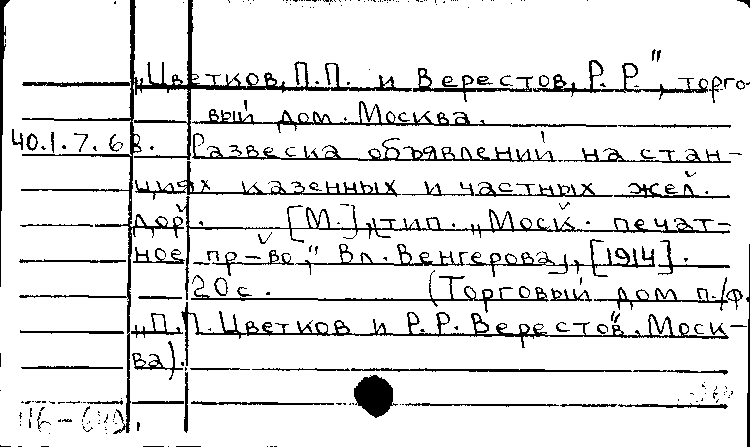 „Цветков, П.П. и Верестов, Р.Р.", торго-
вый дом. Москва.
40.1.7.68. Развеска объявлений на стан-
циях казенных и частных жел.
дор. [М.], тип. „Моск. печат-
ное пр-во", Вл. Венгерова, [1914].
20 с. (Торговый дом п./ф.
„П.П. Цветков и Р.Р. Верестов". Моск-
ва).
116-649.